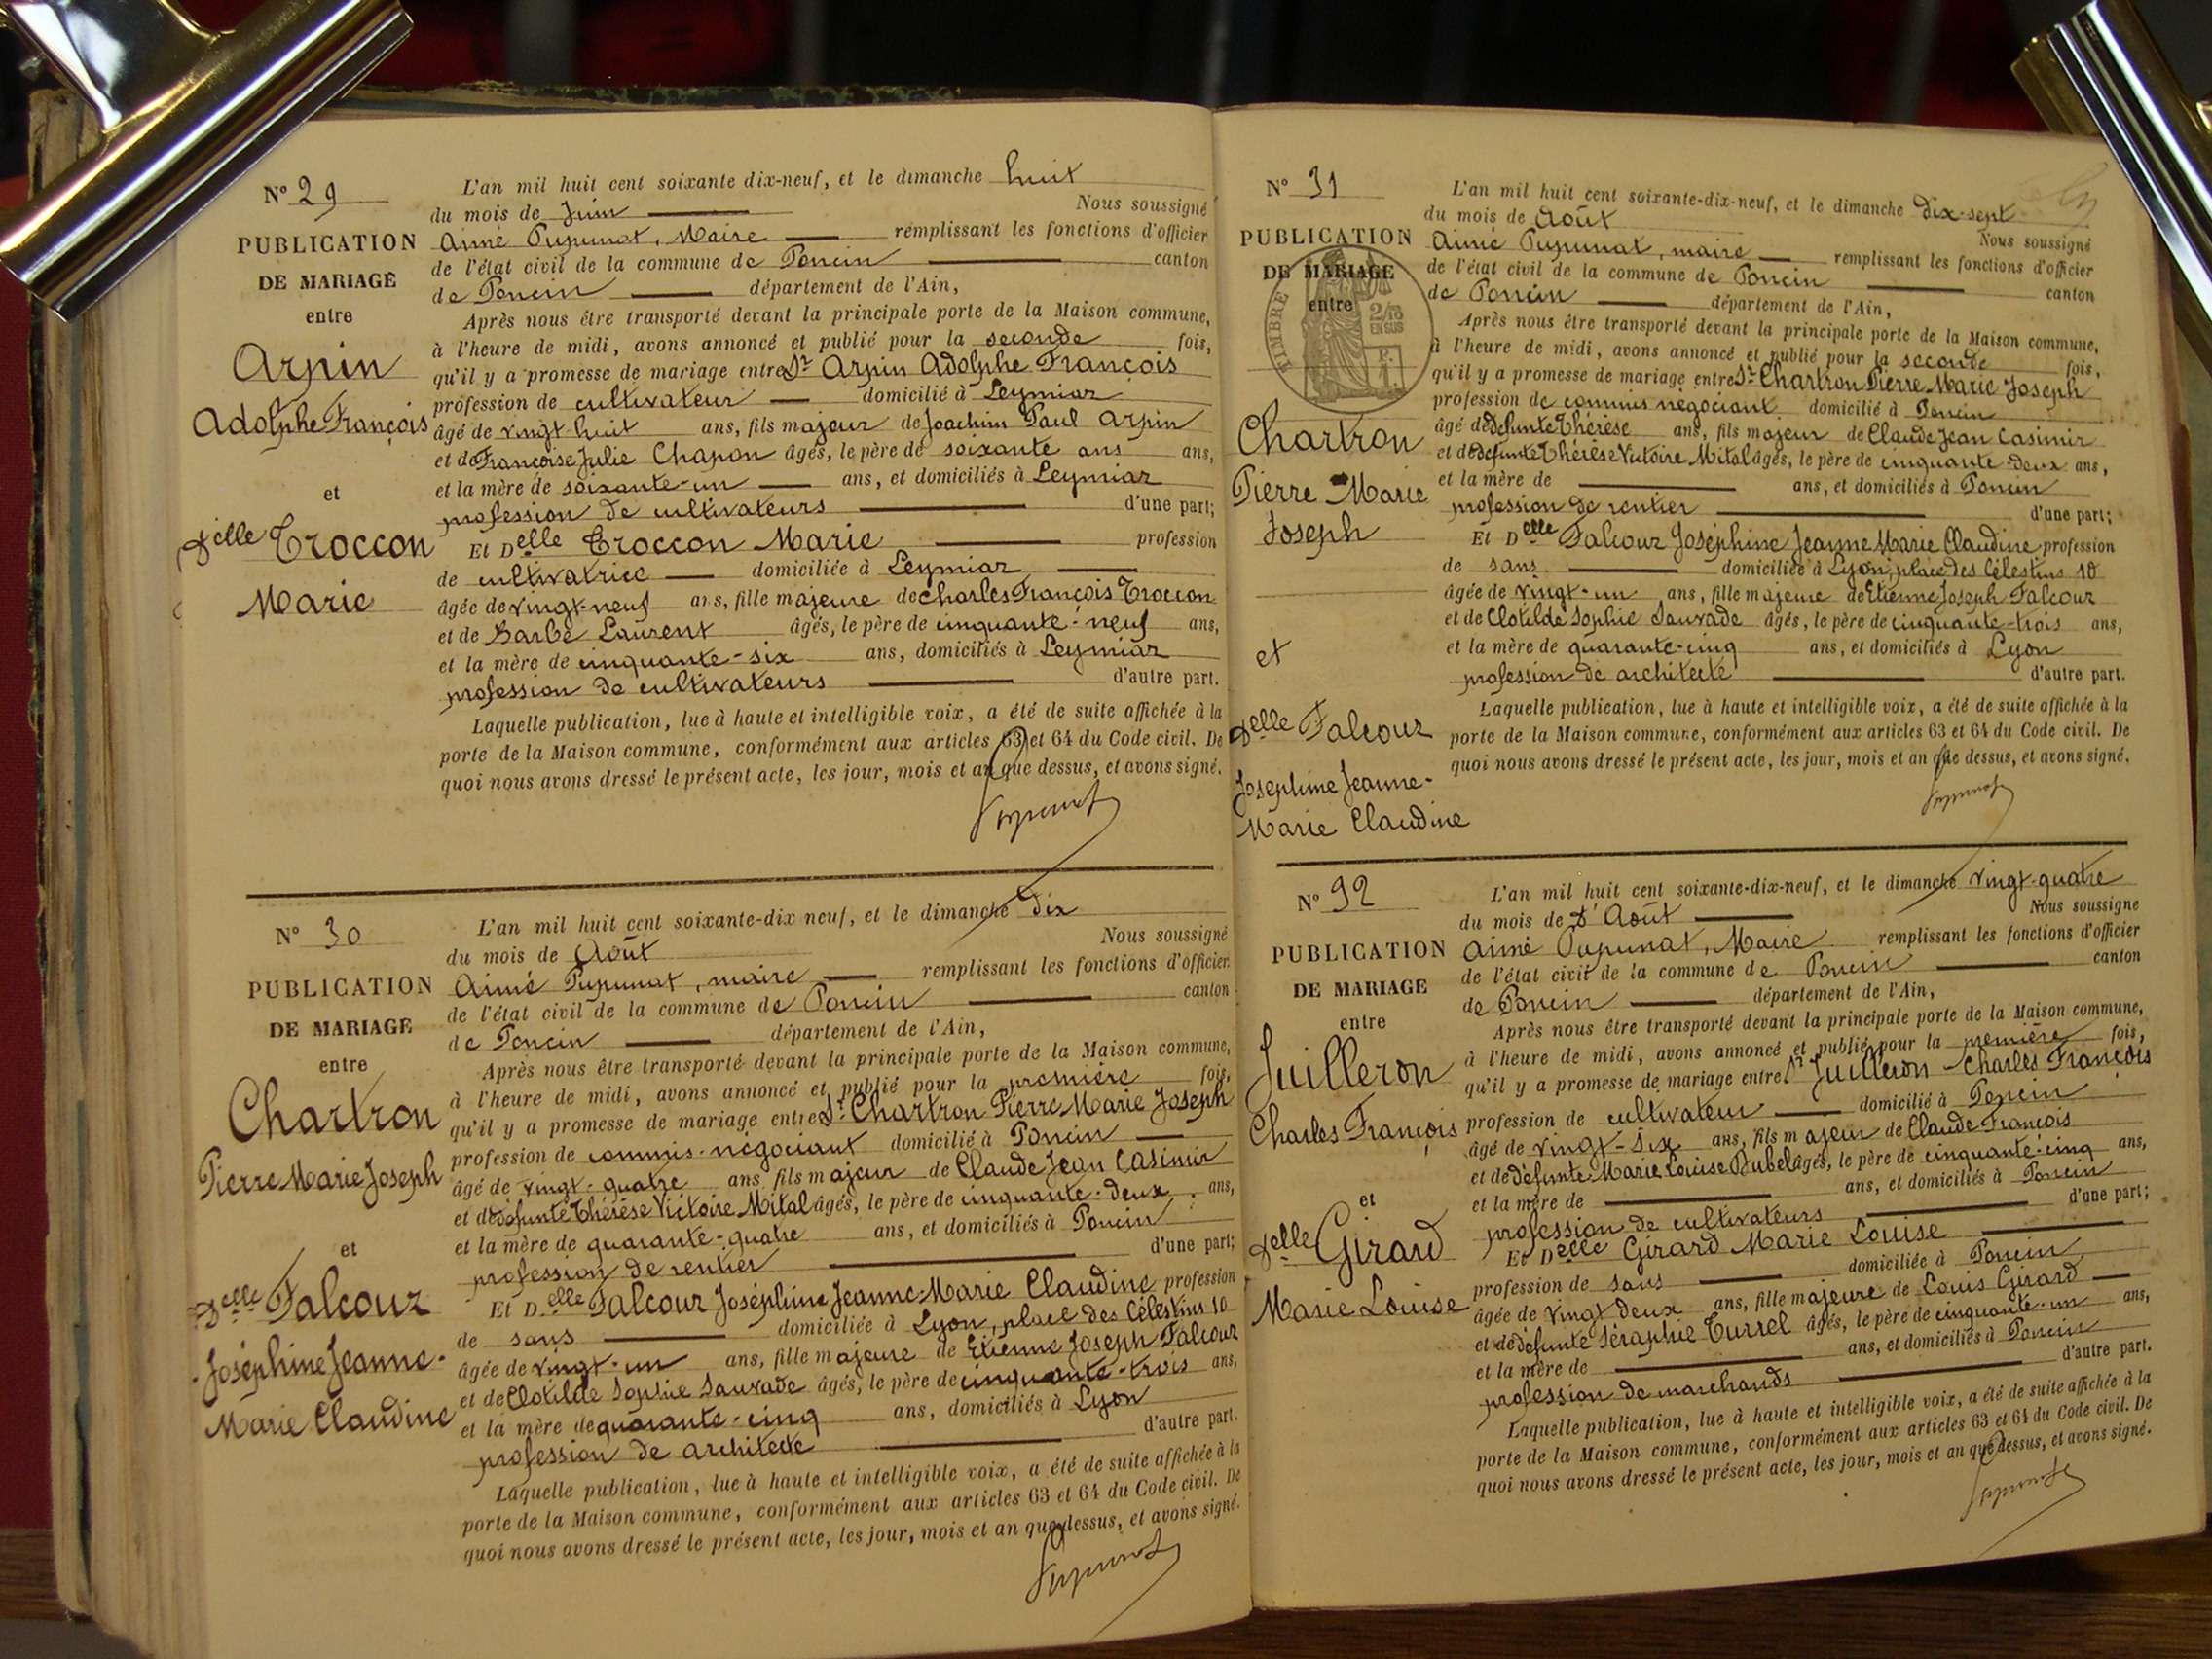 N° 29
PUBLICATION
DE MARIAGE
entre
Arpin
Adolphe François
et
Delle Troccon
Marie
L'an mil huit cent soixante dix-neuf, et le dimanche huit
du mois de Juin Nous soussigné
Aimé Pupunat, Maire remplissant les fonctions d'officier
de l'état civil de la commune de Poncin canton
de Poncin département de l'Ain,
Après nous être transporté devant la principale porte de la Maison commune,
à l'heure de midi, avons annoncé et publié pour la seconde fois,
qu'il y a promesse de mariage entre Sr Arpin Adolphe François
profession de cultivateur domicilié à Leymiar
âgé de vingt-huit ans, fils majeur de Joachim Paul Arpin
et de Françoise Julie Chapon âgés, le père de soixante ans ans,
et la mère de soixante-un ans, et domiciliés à Leymiar
profession de cultivateurs d'une part;
Et Delle Troccon Marie profession
de cultivatrice domiciliée à Leymiar
âgée de vingt-neuf ans, fille majeure de Charles François Troccon
et de Barbe Laurent âgés, le père de cinquante-neuf ans,
et la mère de cinquante-six ans, domiciliés à Leymiar
profession de cultivateurs d'autre part.
Laquelle publication, lue à haute et intelligible voix, a été de suite affichée à la
porte de la Maison commune, conformément aux articles 63 et 64 du Code civil. De
quoi nous avons dressé le présent acte, les jour, mois et an que dessus, et avons signé.
Pupunat
N° 30
PUBLICATION
DE MARIAGE
entre
Chartron
Pierre Marie Joseph
et
Delle Falcouz
Joséphine Jeanne-
Marie Claudine
L'an mil huit cent soixante-dix neuf, et le dimanche dix
du mois de Août Nous soussigné
Aimé Pupunat, maire remplissant les fonctions d'officier
de l'état civil de la commune de Poncin canton
de Poncin département de l'Ain,
Après nous être transporté devant la principale porte de la Maison commune,
à l'heure de midi, avons annoncé et publié pour la première fois,
qu'il y a promesse de mariage entre Sr Chartron Pierre Marie Joseph
profession de commis-négociant domicilié à Poncin
âgé de vingt-quatre ans fils majeur de Claude Jean Casimir
et de défunte Thérèse Victoire Mital âgés, le père de cinquante-deux ans,
et la mère de quarante-quatre ans, et domiciliés à Poncin
profession de rentier d'une part;
Et Delle Falcouz Joséphine Jeanne-Marie Claudine profession
de sans domiciliée à Lyon, place des Célestins 10
âgée de vingt-un ans, fille majeure de Etienne Joseph Falcouz
et de Clotilde Sophie Sauvade âgés, le père de cinquante-trois ans,
et la mère de quarante-cinq ans, domiciliés à Lyon
profession de architecte d'autre part.
Laquelle publication, lue à haute et intelligible voix, a été de suite affichée à la
porte de la Maison commune, conformément aux articles 63 et 64 du Code civil. De
quoi nous avons dressé le présent acte, les jour, mois et an que dessus, et avons signé.
Pupunat
N° 31
PUBLICATION
DE MARIAGE
entre
TIMBRE
2/10
EN SUS
Chartron
Pierre Marie
Joseph
et
Delle Falcouz
Joséphine Jeanne-
Marie Claudine
L'an mil huit cent soixante-dix-neuf, et le dimanche dix-sept
du mois de Août Nous soussigné
Aimé Pupunat, maire remplissant les fonctions d'officier
de l'état civil de la commune de Poncin canton
de Poncin département de l'Ain,
Après nous être transporté devant la principale porte de la Maison commune,
à l'heure de midi, avons annoncé et publié pour la seconde fois,
qu'il y a promesse de mariage entre Sr Chartron Pierre Marie Joseph
profession de commis négociant domicilié à Poncin
âgé de défunte Thérèse ans, fils majeur de Claude Jean Casimir
et de défunte Thérèse Victoire Mital âgés, le père de cinquante-deux ans,
et la mère de ans, et domiciliés à Poncin
profession de rentier d'une part;
Et Delle Falcouz Joséphine Jeanne Marie Claudine profession
de sans domiciliée à Lyon, place des Célestins 10
âgée de vingt-un ans, fille majeure de Etienne Joseph Falcouz
et de Clotilde Sophie Sauvade âgés, le père de cinquante-trois ans,
et la mère de quarante-cinq ans, et domiciliés à Lyon
profession de architecte d'autre part.
Laquelle publication, lue à haute et intelligible voix, a été de suite affichée à la
porte de la Maison commune, conformément aux articles 63 et 64 du Code civil. De
quoi nous avons dressé le présent acte, les jour, mois et an que dessus, et avons signé.
Pupunat
N° 32
PUBLICATION
DE MARIAGE
entre
Juilleron
Charles François
et
Delle Girard
Marie Louise
L'an mil huit cent soixante-dix-neuf, et le dimanche vingt-quatre
du mois de d'Août Nous soussigné
Aimé Pupunat, Maire remplissant les fonctions d'officier
de l'état civil de la commune de Poncin canton
de Poncin département de l'Ain,
Après nous être transporté devant la principale porte de la Maison commune,
à l'heure de midi, avons annoncé et publié pour la première fois,
qu'il y a promesse de mariage entre Sr Juilleron Charles François
profession de cultivateur domicilié à Poncin
âgé de vingt-six ans, fils majeur de Claude François
et de défunte Marie Louise Bubel âgés, le père de cinquante-cinq ans,
et la mère de ans, et domiciliés à Poncin
profession de cultivateurs d'une part;
Et Delle Girard Marie Louise
profession de sans domiciliée à Poncin
âgée de vingt deux ans, fille majeure de Louis Girard
et de défunte Séraphie Turrel âgés, le père de cinquante-un ans,
et la mère de ans, et domiciliés à Poncin
profession de marchands d'autre part.
Laquelle publication, lue à haute et intelligible voix, a été de suite affichée à la
porte de la Maison commune, conformément aux articles 63 et 64 du Code civil. De
quoi nous avons dressé le présent acte, les jour, mois et an que dessus, et avons signé.
Pupunat